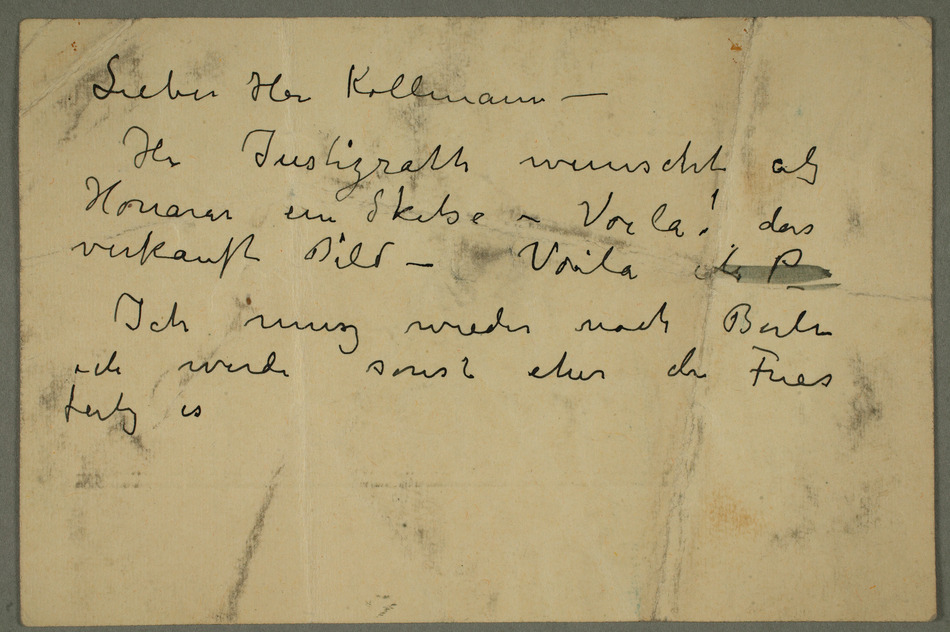 Lieber Herr Kollmann —
Herr Justizrath wunscht als
Honorar ein Skitse – Voila! das
verkauft Bild — Voila
Ich musz wieder nach Berlin
ich werde sonst eher der Fries
fertig is